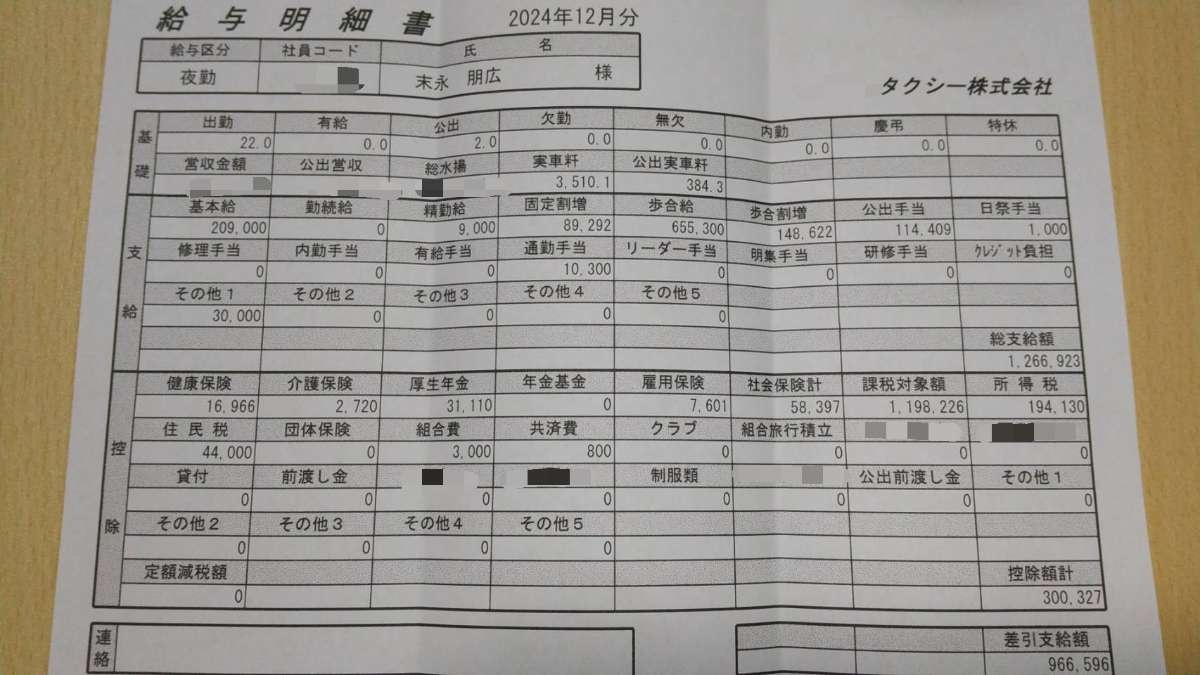 給与明細書 2024年12月分
給与区分 社員コード 氏名
夜勤 末永 朋広 様
タクシー株式会社
基礎
出勤 有給 公出 欠勤 無欠 内勤 慶弔 特休
22.0 0.0 2.0 0.0 0.0 0.0 0.0 0.0
営収金額 公出営収 総水揚 実車粁 公出実車粁
3,510.1 384.3
支給
基本給 勤続給 精勤給 固定割増 歩合給 歩合割増 公出手当 日祭手当
209,000 0 9,000 89,292 655,300 148,622 114,409 1,000
修理手当 内勤手当 有給手当 通勤手当 リーダー手当 明集手当 研修手当 クレジット負担
0 0 0 10,300 0 0 0 0
その他1 その他2 その他3 その他4 その他5
30,000 0 0 0 0
総支給額
1,266,923
控除
健康保険 介護保険 厚生年金 年金基金 雇用保険 社会保険計 課税対象額 所得税
16,966 2,720 31,110 0 7,601 58,397 1,198,226 194,130
住民税 団体保険 組合費 共済費 クラブ 組合旅行積立
44,000 0 3,000 800 0 0 0 0
貸付 前渡し金 制服類 公出前渡し金 その他1
0 0 0 0 0 0 0 0
その他2 その他3 その他4 その他5
0 0 0 0
定額減税額 控除額計
0 300,327
連絡
差引支給額
966,596